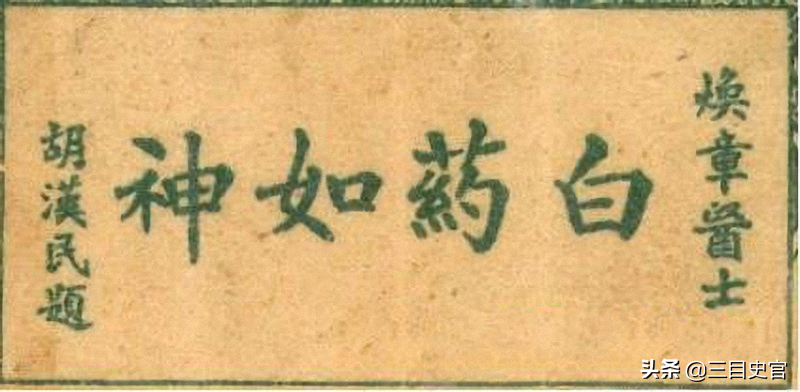 煥章醫士
白葯如神
胡漢民題
头条 @三目史官